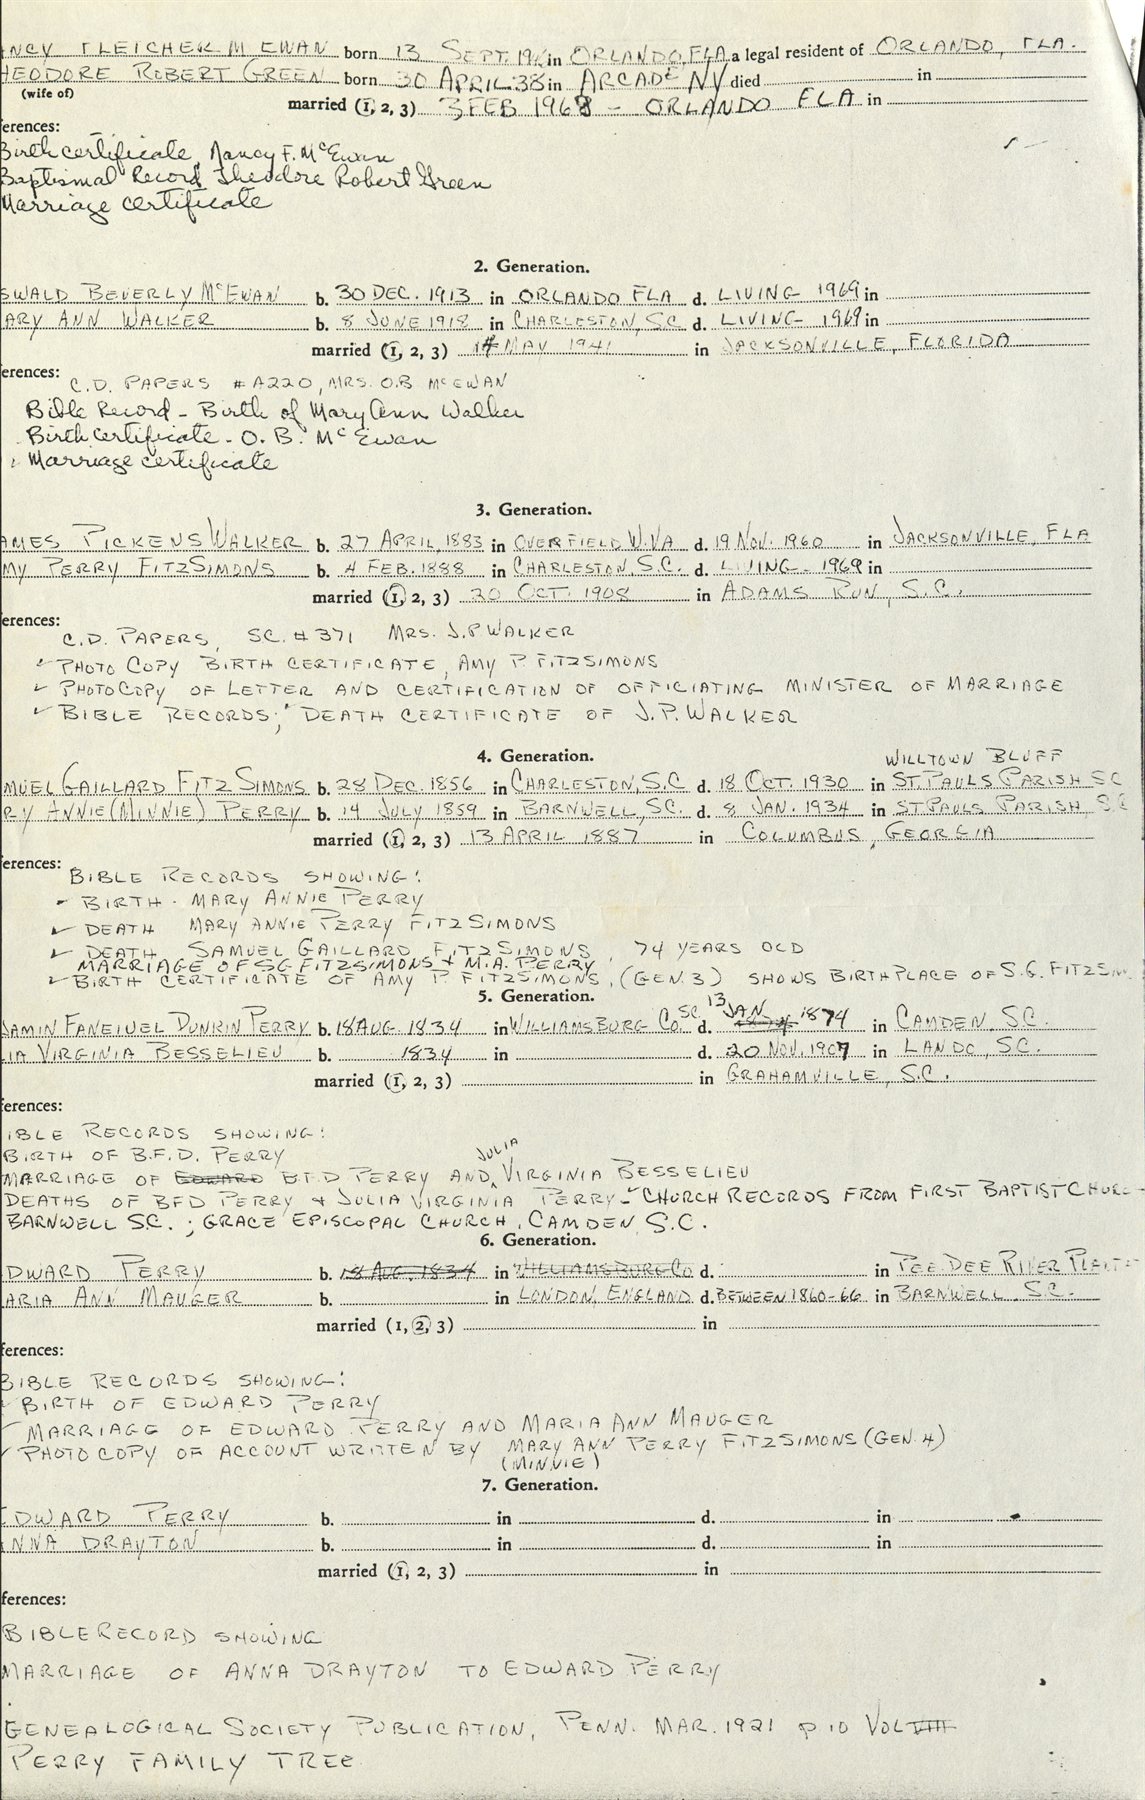 NCY FLETCHER MCEWAN born 13 SEPT. in ORLANDO, FLA a legal resident of ORLANDO, FLA.
HEODORE ROBERT GREEN born 30 APRIL 38 in ARCADE NY died in
(wife of)
married (1, 2, 3) 3 FEB 1968 - ORLANDO FLA in
erences:
Birth certificate, Nancy F. McEwan
Baptismal Record Theodore Robert Green
Marriage certificate
2. Generation.
SWALD BEVERLY McEWAN b. 30 DEC. 1913 in ORLANDO FLA d. LIVING 1969 in
ARY ANN WALKER b. 8 JUNE 1918 in CHARLESTON, S.C d. LIVING - 1969 in
married (1, 2, 3) MAY 1941 in JACKSONVILLE, FLORIDA
erences:
C.D. PAPERS # A220, MRS. O.B McEWAN
Bible Record - Birth of Mary Ann Walker
Birth Certificate - O. B. McEwan
Marriage Certificate
3. Generation.
AMES PICKENS WALKER b. 27 APRIL, 1883 in OVERFIELD W.VA d. 19 NOV. 1960 in JACKSONVILLE, FLA
MY PERRY FITZSIMONS b. 4 FEB. 1888 in CHARLESTON, S.C. d. LIVING - 1969 in
married (1, 2, 3) 20 OCT. 1908 in ADAMS RUN, S.C.
erences:
C.D. PAPERS, SC. # 371 MRS. J.P. WALKER
✓ PHOTO COPY BIRTH CERTIFICATE, AMY P. FITZSIMONS
✓ PHOTOCOPY OF LETTER AND CERTIFICATION OF OFFICIATING MINISTER OF MARRIAGE
✓ BIBLE RECORDS; ✓ DEATH CERTIFICATE OF J.P. WALKER
4. Generation.
WILLTOWN BLUFF
MUEL GAILLARD FITZSIMONS b. 28 DEC. 1856 in CHARLESTON, S.C d. 18 OCT. 1930 in ST. PAULS PARISH SC
RY ANNIE (MINNIE) PERRY b. 14 JULY 1859 in BARNWELL, SC. d. 8 JAN. 1934 in ST PAULS PARISH, SC
married (1, 2, 3) 13 APRIL 1887 in COLUMBUS, GEORGIA
erences:
BIBLE RECORDS SHOWING:
BIRTH - MARY ANNIE PERRY
✓ DEATH MARY ANNIE PERRY FITZSIMONS
✓ DEATH SAMUEL GAILLARD FITZSIMONS, 74 YEARS OLD
MARRIAGE OF SG FITZSIMONS & M.A. PERRY
✓ BIRTH CERTIFICATE OF AMY P FITZSIMONS, (GEN. 3) SHOWS BIRTHPLACE OF S.G. FITZSIM
5. Generation.
JAMIN FANEIUEL DUNKIN PERRY b. 18 AUG. 1834 in WILLIAMSBURG CO. SC. d. 13 JAN 1874 in CAMDEN, S.C.
LIA VIRGINIA BESSELIEU b. 1834 in d. 20 NOV. 1907 in LANDO, SC.
married (1, 2, 3) in GRAHAMVILLE, S.C.
ferences:
IBLE RECORDS SHOWING:
BIRTH OF B.F.D. PERRY
JULIA
MARRIAGE OF EDWARD B.F.D PERRY AND VIRGINIA BESSELIEU
DEATHS OF BFD PERRY & JULIA VIRGINIA PERRY - CHURCH RECORDS FROM FIRST BAPTIST CHURC
BARNWELL S.C. ; GRACE EPISCOPAL CHURCH, CAMDEN, S.C.
6. Generation.
DWARD PERRY b. 18 AUG. 1834 in WILLIAMSBURG CO d. in PEE DEE RIVER
ARIA ANN MAUGER b. in LONDON, ENGLAND d. BETWEEN 1860-66 in BARNWELL, S.C.
married (1, 2, 3) in
ferences:
BIBLE RECORDS SHOWING:
✓ BIRTH OF EDWARD PERRY
✓ MARRIAGE OF EDWARD PERRY AND MARIA ANN MAUGER
✓ PHOTO COPY OF ACCOUNT WRITTEN BY MARY ANN PERRY FITZSIMONS (GEN. 4)
(MINNIE)
7. Generation.
EDWARD PERRY b. in d. in
NNA DRAYTON b. in d. in
married (1, 2, 3) in
ferences:
BIBLE RECORD SHOWING
MARRIAGE OF ANNA DRAYTON TO EDWARD PERRY
GENEALOGICAL SOCIETY PUBLICATION, PENN. MAR. 1921 p 10 VOL VIII
PERRY FAMILY TREE